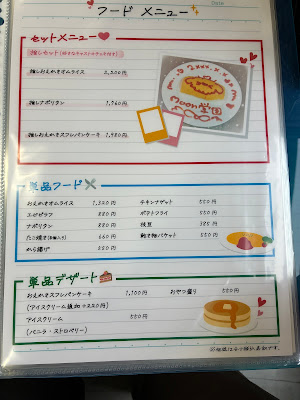 フード メニュー
Date
セットメニュー
推しセット(好きなキャストのチェキ付き)
推しおえかきオムライス 2,200円
推しナポリタン 1,760円
推しおえかきスフレパンケーキ 1,980円
単品フード
おえかきオムライス 1,320円
エビピラフ 880円
ナポリタン 880円
たこ焼き(8個入り) 660円
から揚げ 550円
チキンナゲット 550円
ポテトフライ 550円
枝豆 385円
揚げ物バケット 550円
単品デザート
おえかきスフレパンケーキ 1,100円
(アイスクリーム追加 +220円)
アイスクリーム 550円
(バニラ・ストロベリー)
おやつ盛り 550円
※価格は全て税込表記です。